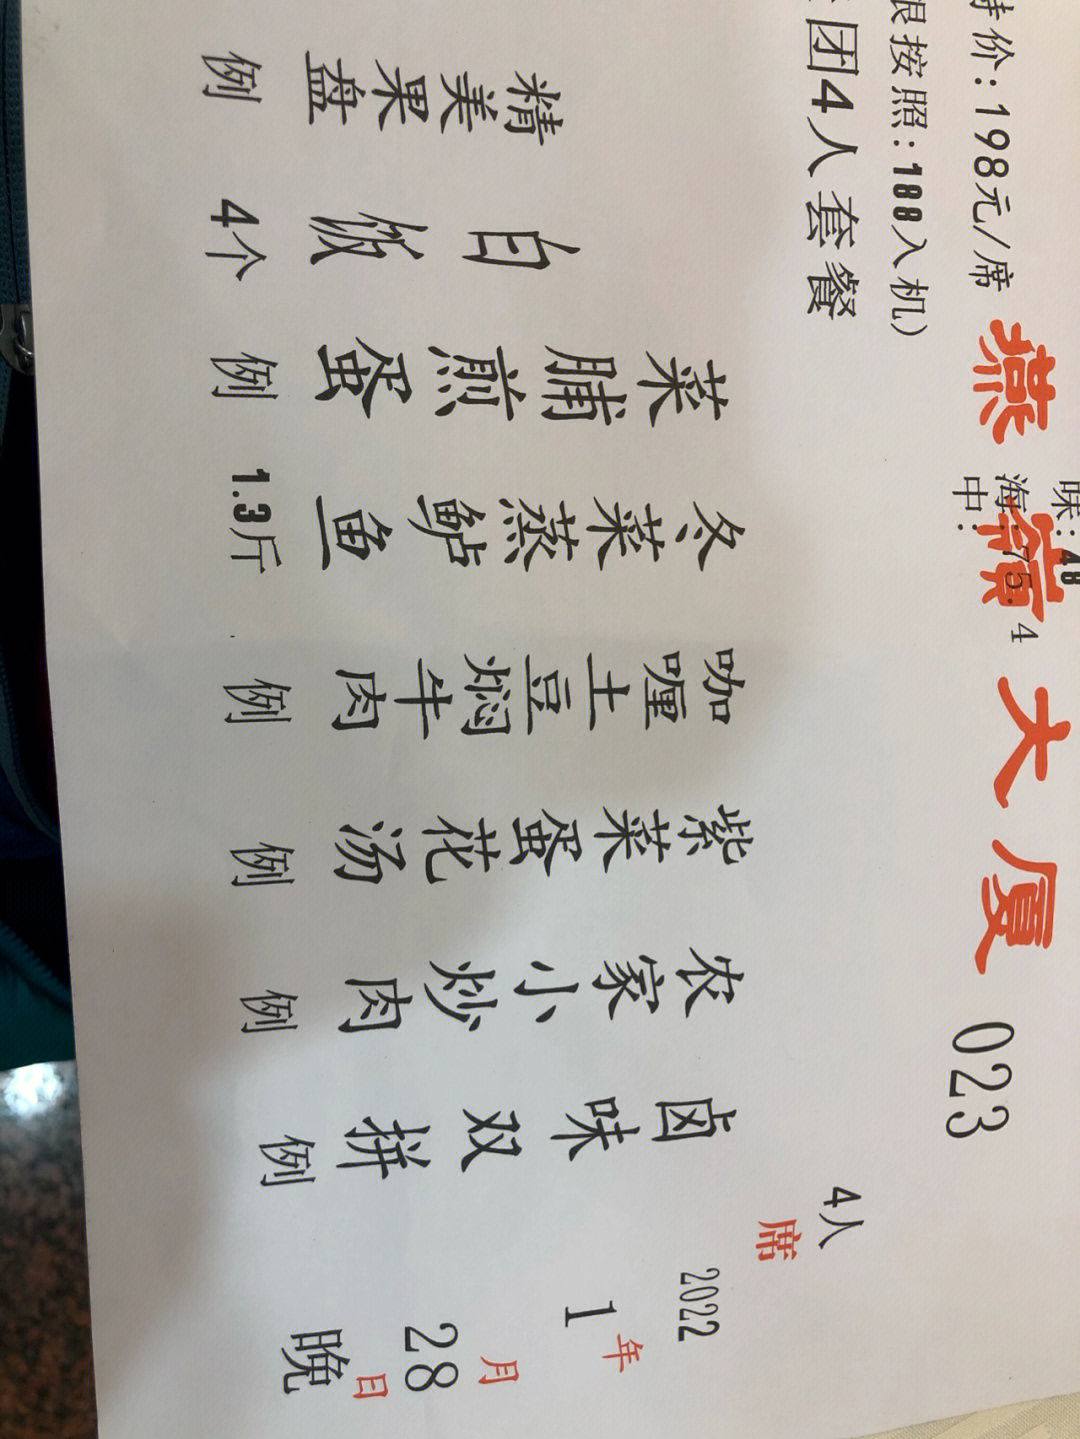 特价:198元/席
按照:188入机)
团4人套餐
味:48
海:75.4
中:
燕嶺大厦 023
4人席
2022年1月28日晚
卤味双拼 例
农家小炒肉 例
紫菜蛋花汤 例
咖喱土豆焖牛肉 例
冬菜蒸鲈鱼 1.3斤
菜脯煎蛋 例
白饭 4个
精美果盘 例